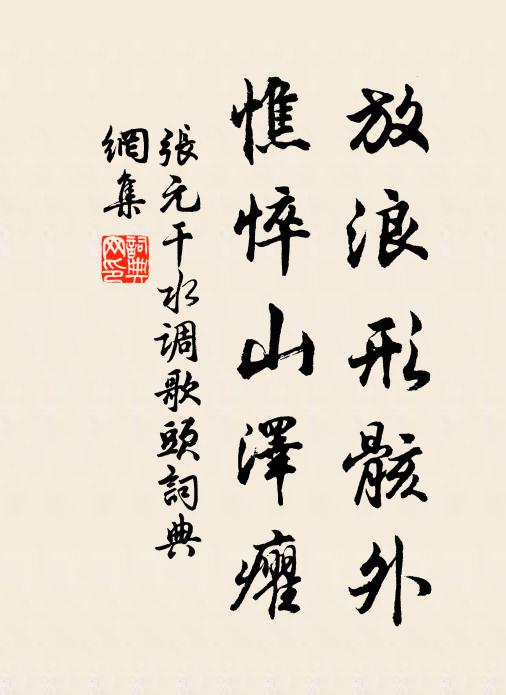 放浪形骸外
憔悴山澤癯
張元干水调歌頭詞典
網集
詞典
网印